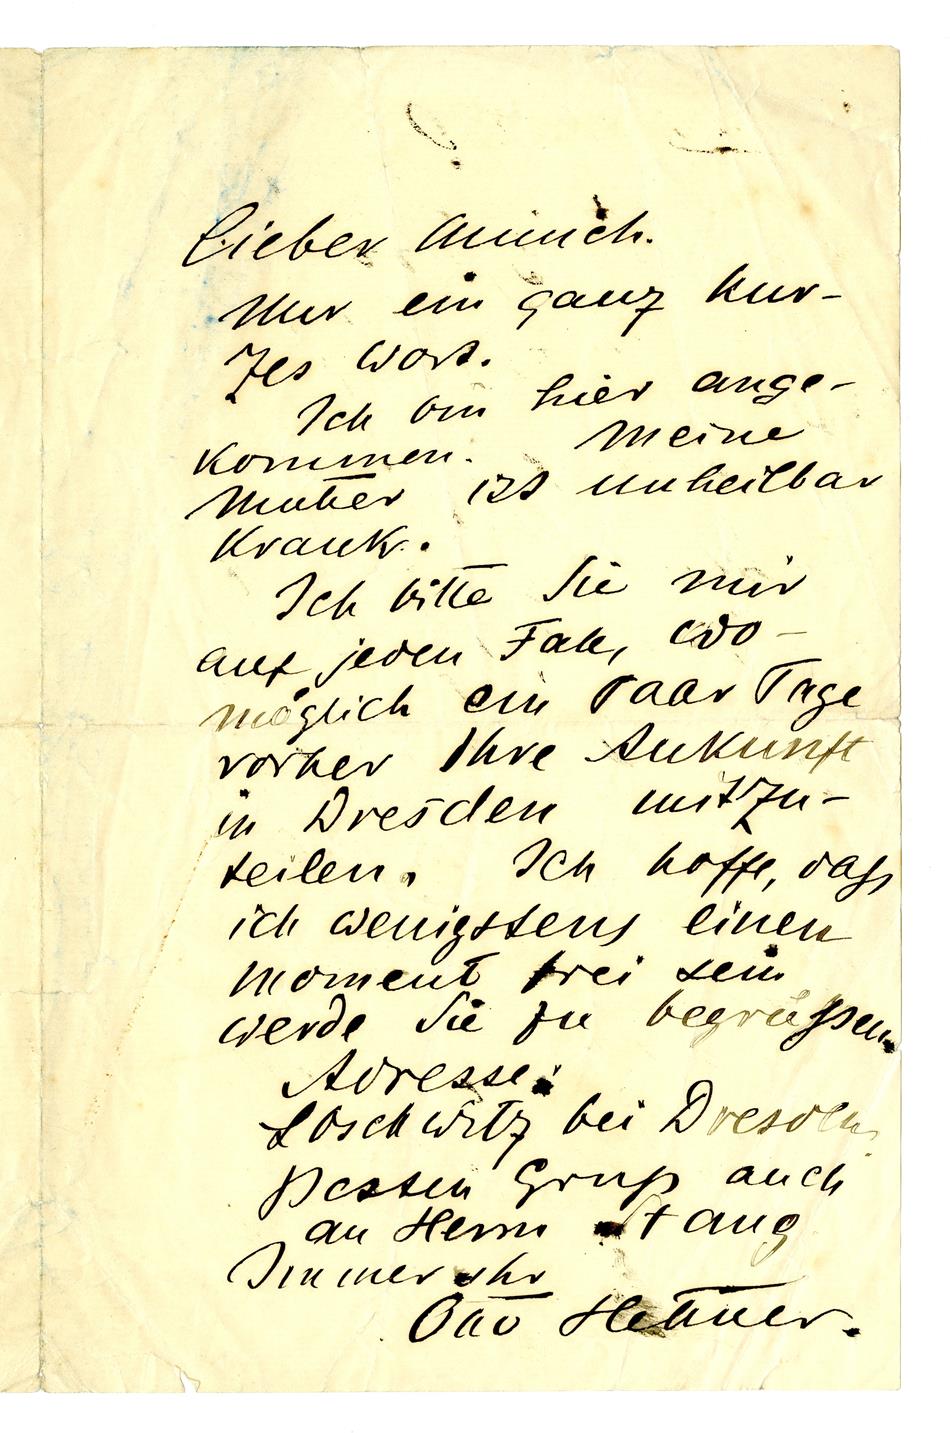 Lieber Munch.
Nur ein ganz kur-
zes Wort.
Ich bin hier ange-
kommen. Meine
Mutter ist unheilbar
krank.
Ich bitte Sie mir
auf jeden Fall, wo-
möglich ein Paar Tage
vorher Ihre Ankunft
in Dresden mitzu-
teilen. Ich hoffe, daß
ich wenigstens einen
Moment frei sein
werde Sie zu begrüßen.
Adresse:
Loschwitz bei Dresden
Besten Gruß auch
an Herrn Stang
Immer Ihr
Otto Hettner.